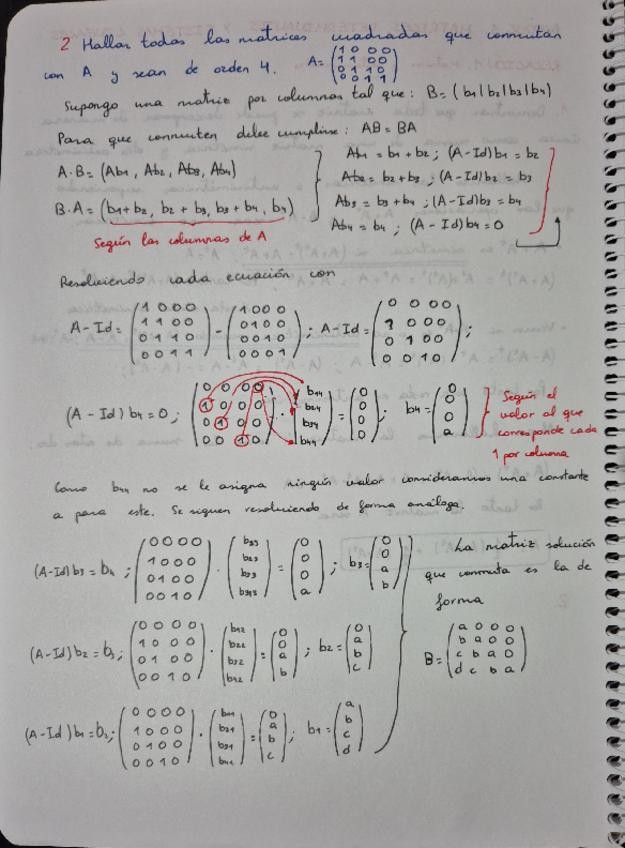 2 Hallar todas las matrices cuadradas que conmutan
con A y sean de orden 4. A = (1 0 0 0 / 1 1 0 0 / 0 1 1 0 / 0 0 1 1)
Supongo una matriz por columnas tal que: B = (b1 | b2 | b3 | b4)
Para que conmuten debe cumplirse: AB = BA
A · B = (Ab1, Ab2, Ab3, Ab4)
B · A = (b1+b2, b2+b3, b3+b4, b4)
Según las columnas de A
Ab1 = b1 + b2 ; (A-Id)b1 = b2
Ab2 = b2 + b3 ; (A-Id)b2 = b3
Ab3 = b3 + b4 ; (A-Id)b3 = b4
Ab4 = b4 ; (A-Id)b4 = 0
Resolviendo cada ecuación con
A - Id = (1 0 0 0 / 1 1 0 0 / 0 1 1 0 / 0 0 1 1) - (1 0 0 0 / 0 1 0 0 / 0 0 1 0 / 0 0 0 1) ; A - Id = (0 0 0 0 / 1 0 0 0 / 0 1 0 0 / 0 0 1 0) ;
(A - Id) b4 = 0 ; (0 0 0 0 / 1 0 0 0 / 0 1 0 0 / 0 0 1 0) · (b14 / b24 / b34 / b44) = (0 / 0 / 0 / 0) ; b4 = (0 / 0 / 0 / a)
Según el
valor al que
corresponde cada
1 por columna
Como b44 no se le asigna ningún valor consideramos una constante
a para este. Se siguen resolviendo de forma análoga.
(A-Id) b3 = b4 ; (0 0 0 0 / 1 0 0 0 / 0 1 0 0 / 0 0 1 0) · = (0 / 0 / 0 / a) ; b3 = (0 / 0 / a / b)
(A-Id) b2 = b3 ; (0 0 0 0 / 1 0 0 0 / 0 1 0 0 / 0 0 1 0) · (b12 / b22 / b32 / b42) = (0 / 0 / a / b) ; b2 = (0 / a / b / c)
(A-Id) b1 = b2 ; (0 0 0 0 / 1 0 0 0 / 0 1 0 0 / 0 0 1 0) · (b11 / b21 / b31 / b41) = (0 / a / b / c) ; b1 = (a / b / c / d)
La matriz solución
que conmuta es la de
forma
B = (a 0 0 0 / b a 0 0 / c b a 0 / d c b a)